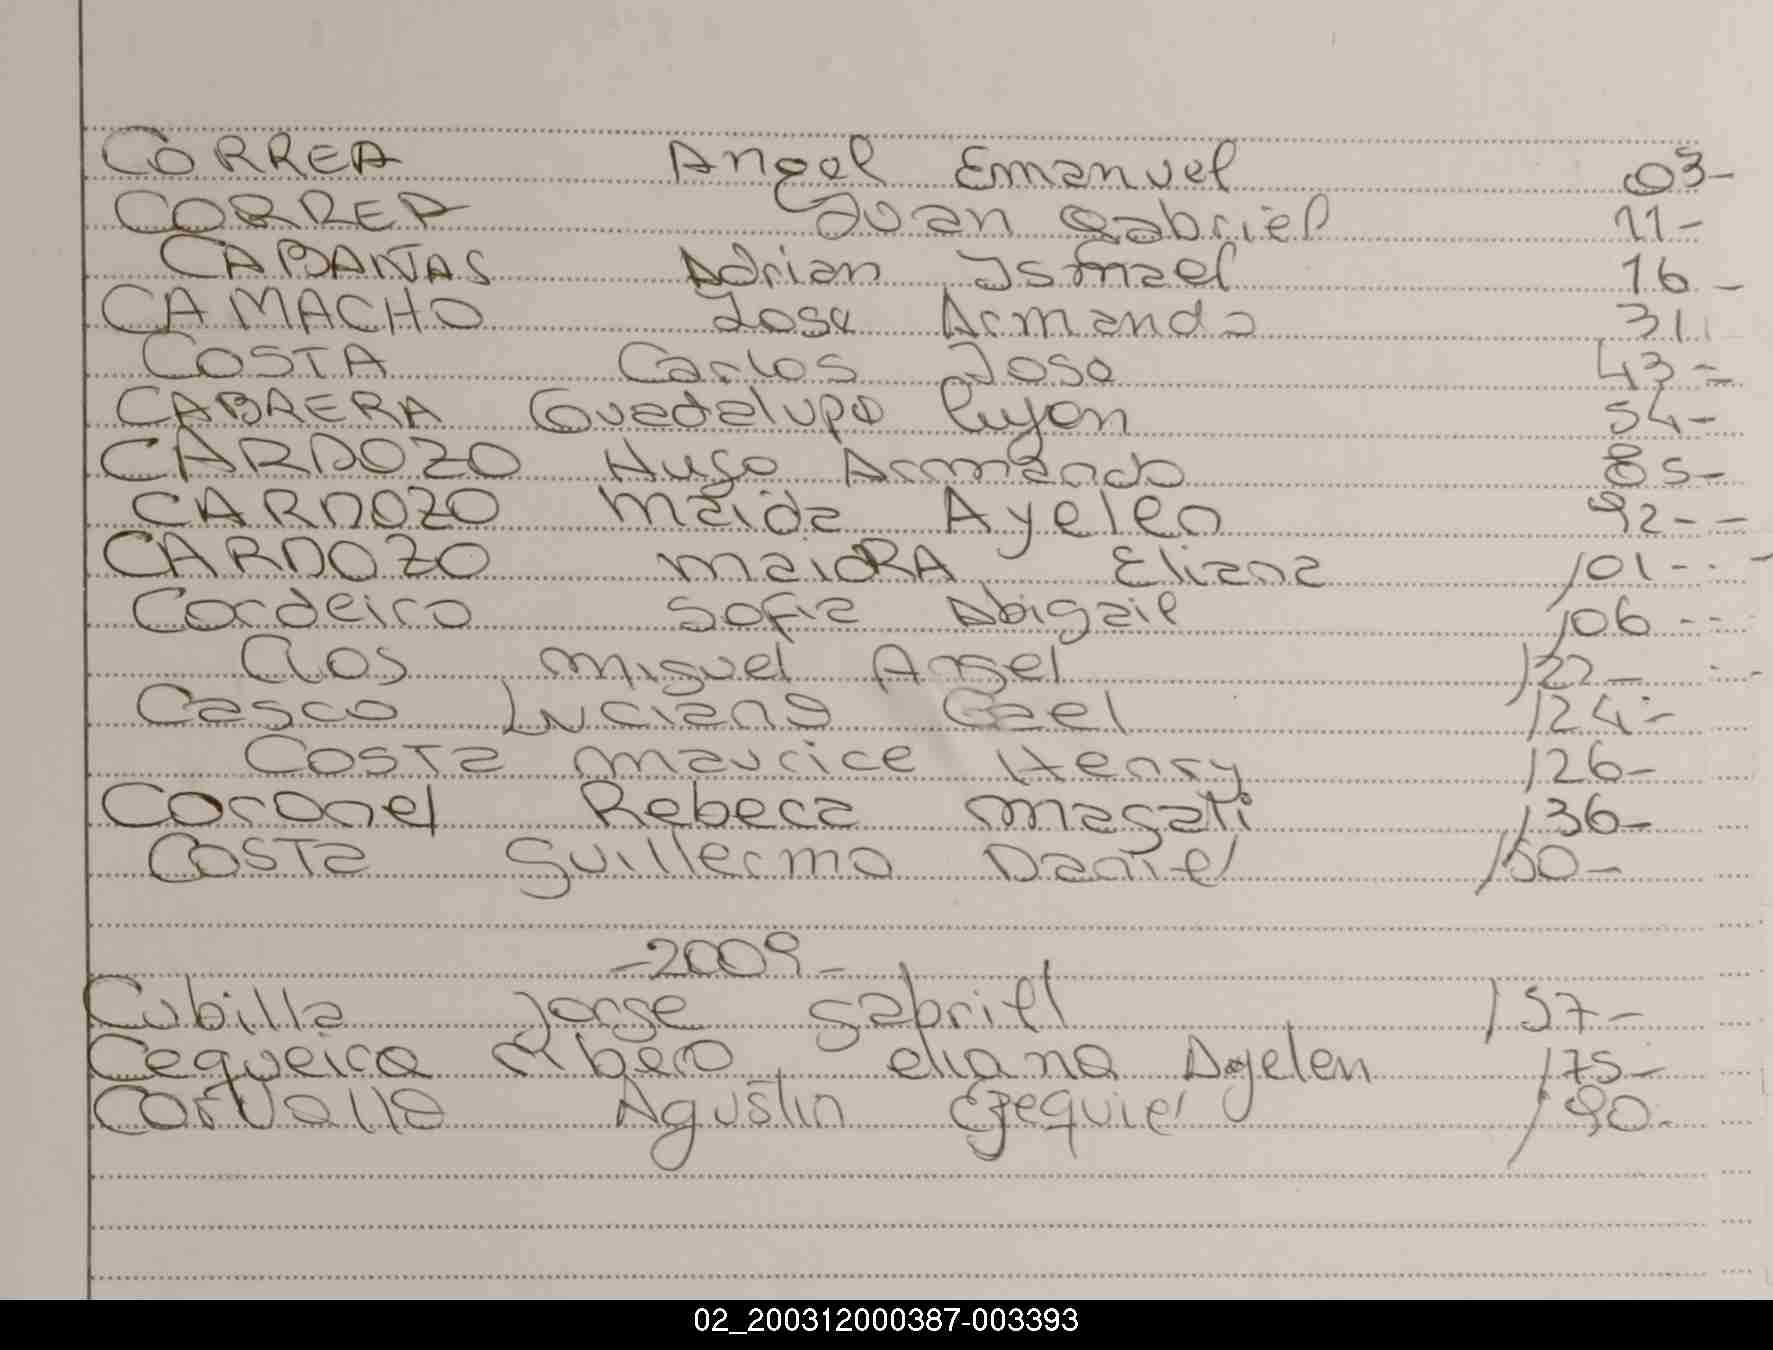 CORREA Angel Emanuel 03-
CORREA Juan Gabriel 11-
CABAÑAS Adrian Ismael 16-
CAMACHO Jose Armando 31
COSTA Carlos Jose 43-
CABRERA Guadalupe Lujan 54-
CARDOZO Hugo Armando 85-
CARDOZO Maida Ayelen 92--
CARDOZO Maiora Eliana 101--
Cordeiro Sofia Abigail 106--
Clos Miguel Angel 122-
Casco Luciano Gael 124-
Costa Maurice Henry 126-
Coronel Rebeca Magali 136-
Costa Guillermo Daniel 150-
-2009-
Cubilla Jorge Gabriel 157-
Cequeira eliana Ayelen 175-
Corvalla Agustin Ezequiel 190-
02_200312000387-003393